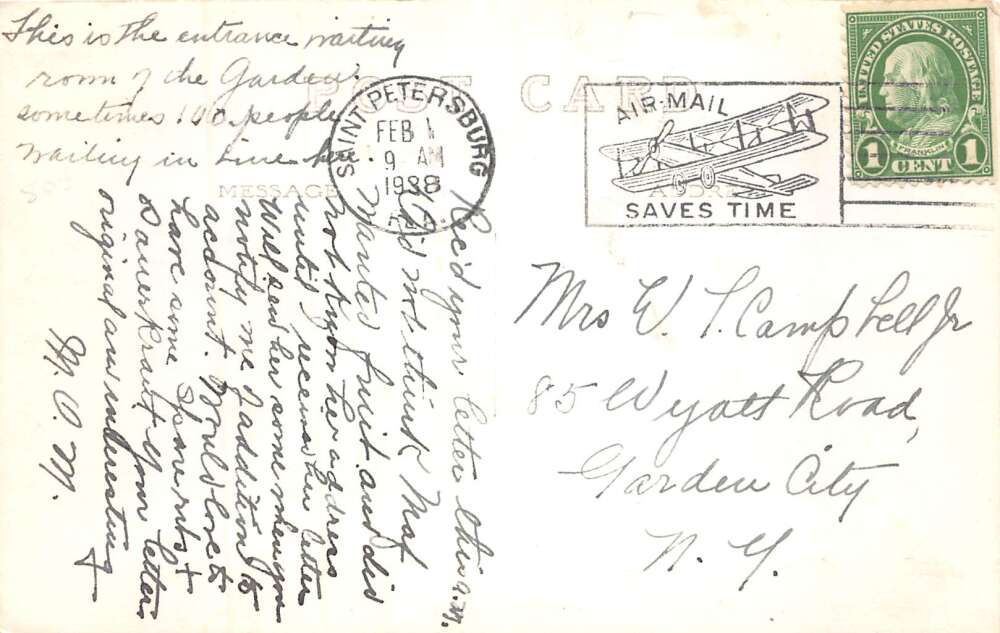 This is the entrance waiting
room of the Garden.
sometimes 100 people
waiting in line here.
POST CARD
MESSAGE
ADDRE
SAINT PETERSBURG
FEB 1
9 AM
1938
FLA.
AIR-MAIL
SAVES TIME
UNITED STATES POSTAGE
FRANKLIN
1 CENT 1
Rec'd your letter this a.m.
Did not think Maf
wanted fruit and did
not know her address
until I received her letter
Will send her some when you
notify me of addition to
account. Would love to
have some Spare ribs +
Sauerkraut. Your letters
original and interesting
M. A. M.
Mrs W. T. Campbell Jr
85 Wyatt Road,
Garden City
N. Y.